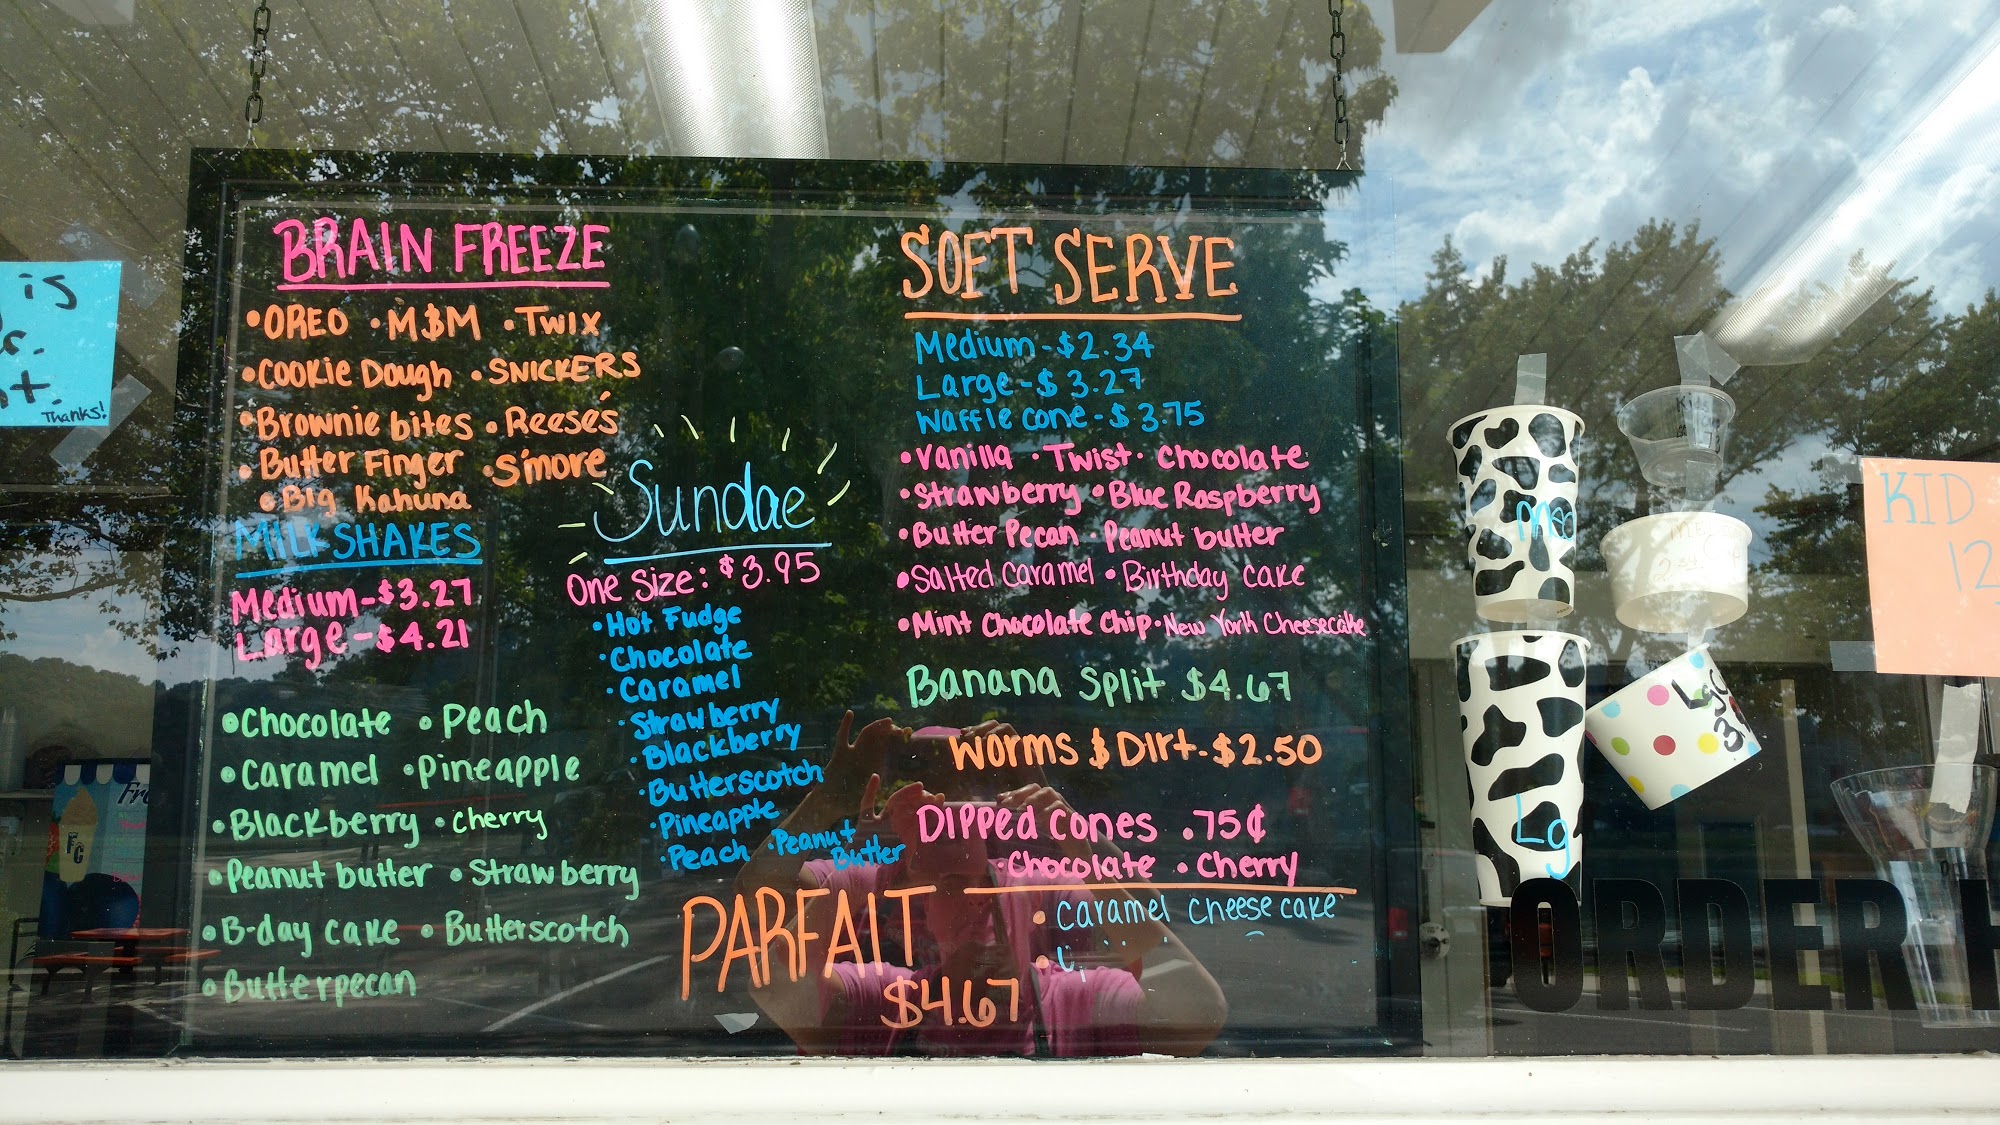 is
Thanks!
BRAIN FREEZE
• OREO • M&M • TWIX
• Cookie Dough • SNICKERS
• Brownie bites • Reese's
• Butter Finger • S'more
• Big Kahuna
MILKSHAKES
Medium - $3.27
Large - $4.21
• Chocolate • Peach
• Caramel • Pineapple
• Blackberry • Cherry
• Peanut butter • Strawberry
• B-day cake • Butterscotch
• Butterpecan
Sundae
One Size: $3.95
• Hot Fudge
• Chocolate
• Caramel
• Strawberry
• Blackberry
• Butterscotch
• Pineapple
• Peach • Peanut Butter
SOFT SERVE
Medium - $2.34
Large - $3.27
Waffle cone - $3.75
• Vanilla • Twist • Chocolate
• Strawberry • Blue Raspberry
• Butter Pecan • Peanut butter
• Salted Caramel • Birthday cake
• Mint Chocolate Chip • New York Cheesecake
Banana Split $4.67
Worms & Dirt - $2.50
Dipped cones .75¢
• Chocolate • Cherry
PARFAIT
$4.67
• Caramel cheesecake
Med
Lg
Lg
KID
12
ORDER H